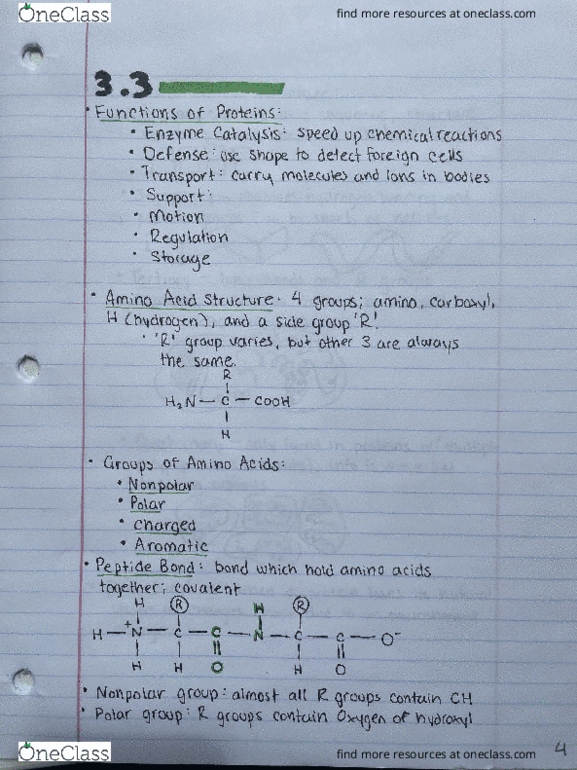 OneClass
find more resources at oneclass.com
3.3
• Functions of Proteins:
• Enzyme Catalysis: speed up chemical reactions
• Defense: use shape to detect foreign cells
• Transport: carry molecules and ions in bodies
• Support:
• Motion
• Regulation
• Storage
• Amino Acid Structure: 4 groups; amino, carboxyl,
H (hydrogen), and a side group 'R'.
• 'R' group varies, but other 3 are always
the same.
R
H₂N — C — COOH
H
• Groups of Amino Acids:
• Nonpolar
• Polar
• charged
• Aromatic
• Peptide Bond: bond which hold amino acids
together; covalent
H R H R
H — +N — C — C — N — C — C — O⁻
H H O H O
• Nonpolar group: almost all R groups contain CH
• Polar group: R groups contain Oxygen of hydroxyl
4
OneClass
find more resources at oneclass.com